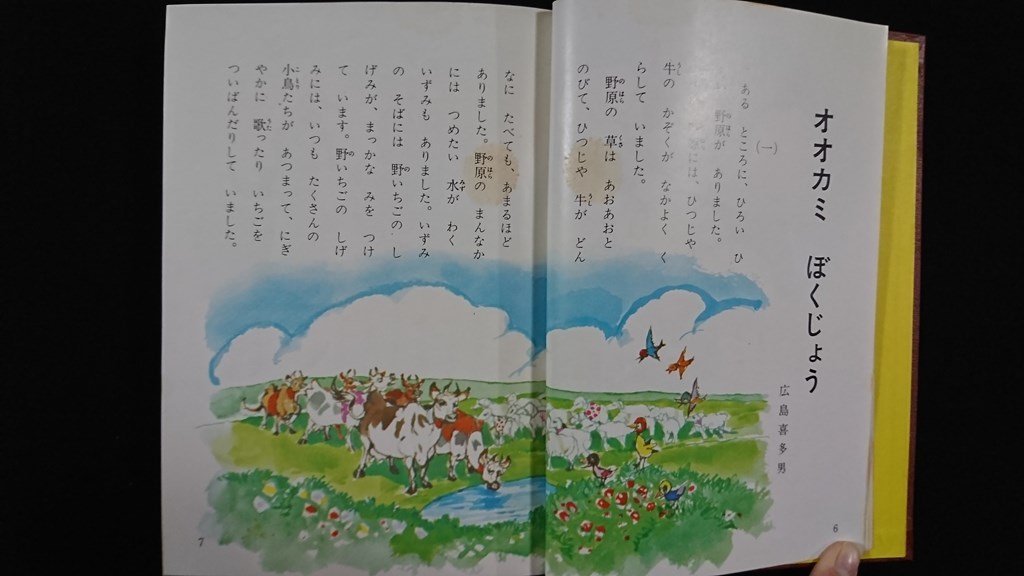 オオカミ ぼくじょう
広島喜多男
(一)
ある ところに、ひろい ひ
野原が ありました。
には、ひつじや
牛の かぞくが なかよく く
らして いました。
野原の 草は あおあおと
のびて、ひつじや 牛が どん
なに たべても、あまるほど
ありました。野原の まんなか
には つめたい 水が わく
いずみも ありました。いずみ
の そばには 野いちごの し
げみが、まっかな みを つけ
て います。野いちごの しげ
みには、いつも たくさんの
小鳥たちが あつまって、にぎ
やかに 歌ったり いちごを
ついばんだりして いました。
6
7